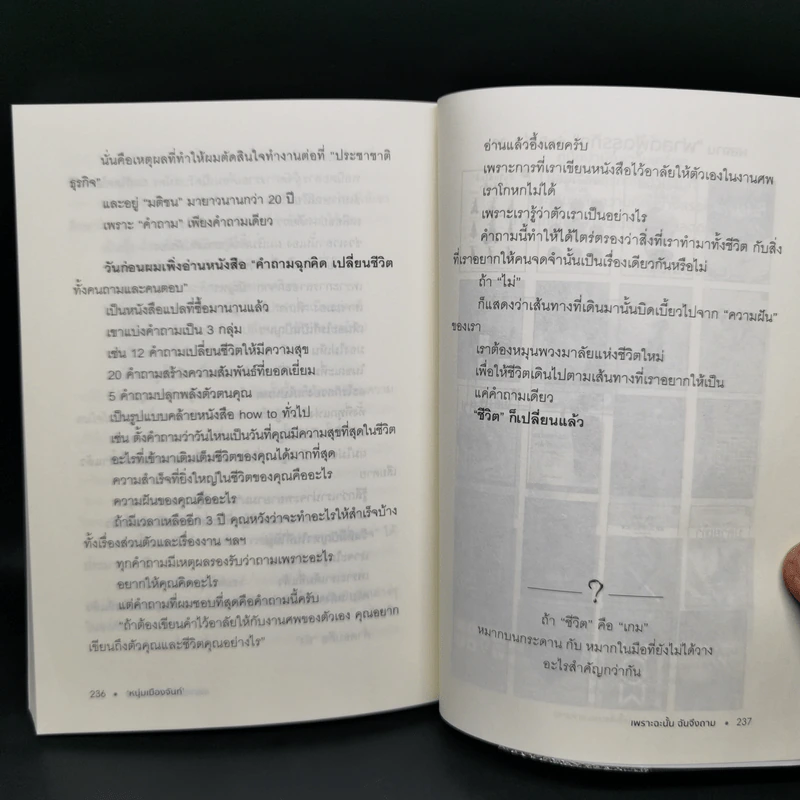 นั่นคือเหตุผลที่ทำให้ผมตัดสินใจทำงานต่อที่ "ประชาชาติ
ธุรกิจ"
และอยู่ "มติชน" มายาวนานกว่า 20 ปี
เพราะ "คำถาม" เพียงคำถามเดียว
วันก่อนผมเพิ่งอ่านหนังสือ "คำถามฉุกคิด เปลี่ยนชีวิต
ทั้งคนถามและคนตอบ"
เป็นหนังสือแปลที่ซื้อมานานแล้ว
เขาแบ่งคำถามเป็น 3 กลุ่ม
เช่น 12 คำถามเปลี่ยนชีวิตให้มีความสุข
20 คำถามสร้างความสัมพันธ์ที่ยอดเยี่ยม
5 คำถามปลุกพลังตัวตนคุณ
เป็นรูปแบบคล้ายหนังสือ how to ทั่วไป
เช่น ตั้งคำถามว่าวันไหนเป็นวันที่คุณมีความสุขที่สุดในชีวิต
อะไรที่เข้ามาเติมเต็มชีวิตของคุณได้มากที่สุด
ความสำเร็จที่ยิ่งใหญ่ในชีวิตของคุณคืออะไร
ความฝันของคุณคืออะไร
ถ้ามีเวลาเหลืออีก 3 ปี คุณหวังว่าจะทำอะไรให้สำเร็จบ้าง
ทั้งเรื่องส่วนตัวและเรื่องงาน ฯลฯ
ทุกคำถามมีเหตุผลรองรับว่าถามเพราะอะไร
อยากให้คุณคิดอะไร
แต่คำถามที่ผมชอบที่สุดคือคำถามนี้ครับ
"ถ้าต้องเขียนคำไว้อาลัยให้กับงานศพของตัวเอง คุณอยาก
เขียนถึงตัวคุณและชีวิตคุณอย่างไร"
236 • 'หนุ่มเมืองจันท์'
อ่านแล้วอึ้งเลยครับ
เพราะการที่เราเขียนหนังสือไว้อาลัยให้ตัวเองในงานศพ
เราโกหกไม่ได้
เพราะเรารู้ว่าตัวเราเป็นอย่างไร
คำถามนี้ทำให้ได้ไตร่ตรองว่าสิ่งที่เราทำมาทั้งชีวิต กับสิ่ง
ที่เราอยากให้คนจดจำนั้นเป็นเรื่องเดียวกันหรือไม่
ถ้า "ไม่"
ก็แสดงว่าเส้นทางที่เดินมานั้นบิดเบี้ยวไปจาก "ความฝัน"
ของเรา
เราต้องหมุนพวงมาลัยแห่งชีวิตใหม่
เพื่อให้ชีวิตเดินไปตามเส้นทางที่เราอยากให้เป็น
แค่คำถามเดียว
"ชีวิต" ก็เปลี่ยนแล้ว
?
ถ้า "ชีวิต" คือ "เกม"
หมากบนกระดาน กับ หมากในมือที่ยังไม่ได้วาง
อะไรสำคัญกว่ากัน
เพราะฉะนั้น ฉันจึงถาม • 237